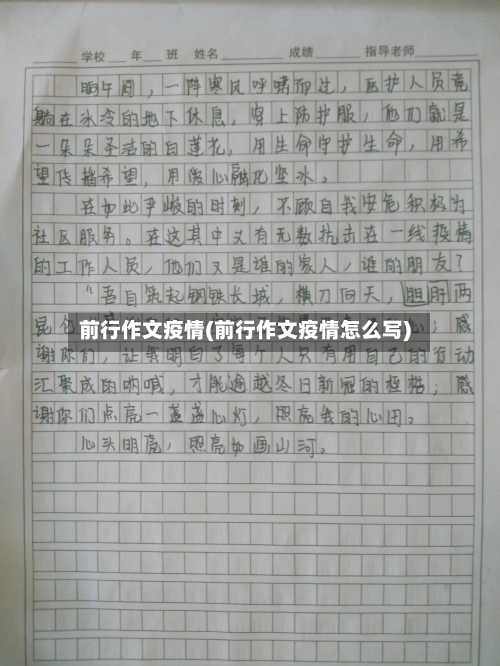 学校 年 班 姓名 成绩 指导老师
晌午间，一阵寒风呼啸而过，医护人员竟
躺在冰冷的地下休息。穿上防护服，他们就是
一朵朵圣洁的白莲花，用生命守护生命，用希
望传播希望，用爱心融化坚冰。
在如此严峻的时刻，不顾自我安危积极为
社区服务。在这其中又有无数抗击在一线疫情
的工作人员，他们又是谁的家人，谁的朋友？
“吾自筑起钢铁长城，横刀向天，胆肝两
昆仑
前行作文疫情(前行作文疫情怎么写)
感
谢你们，让我明白了每个人只有用自己的行动
汇聚成的呐喊，才能逾越冬日新冠的桎梏；感
谢你们点亮一盏盏心灯，照亮我的心田。
心头明亮，照亮如画山河。